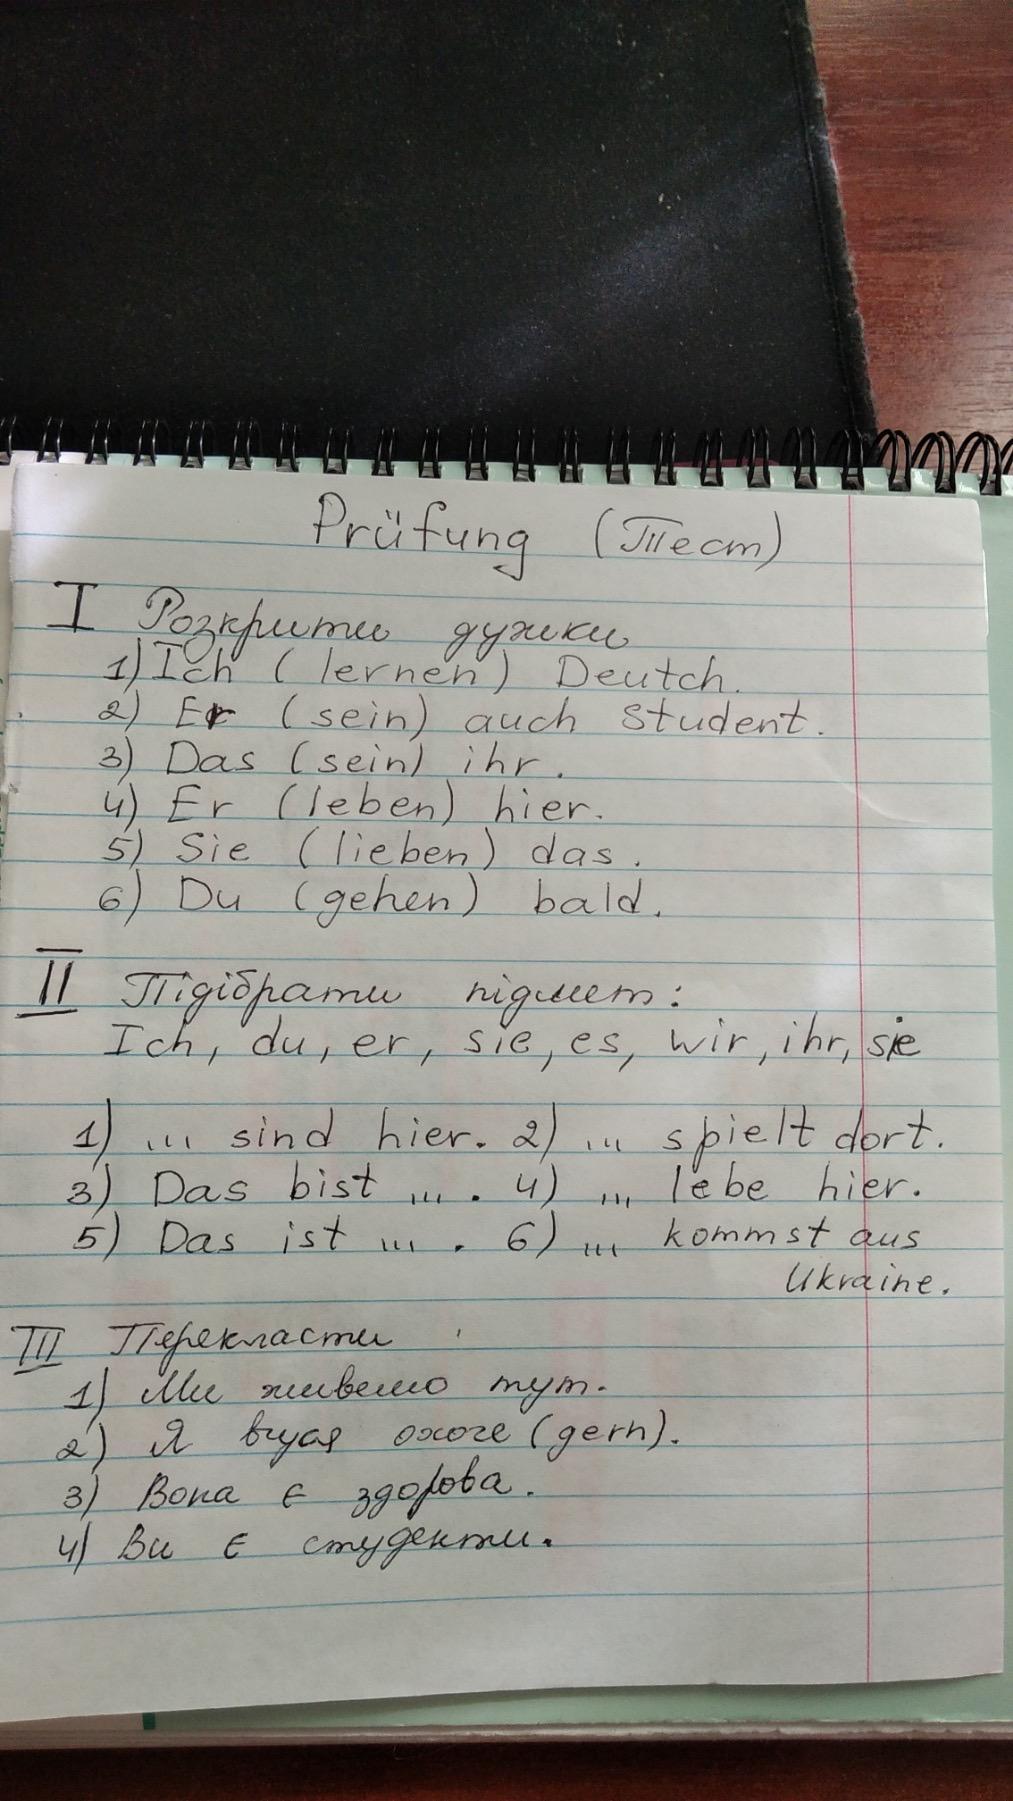 Prüfung (Тест)
I Розкрити дужки
1) Ich (lernen) Deutch.
2) Er (sein) auch Student.
3) Das (sein) ihr.
4) Er (leben) hier.
5) Sie (lieben) das.
6) Du (gehen) bald.
II Підібрати підмет:
Ich, du, er, sie, es, wir, ihr, sie
1) ... sind hier. 2) ... spielt dort.
3) Das bist ... . 4) ... lebe hier.
5) Das ist ... . 6) ... kommst aus
Ukraine.
III Перекласти
1) Ми живемо тут.
2) Я вчуся охоче (gern).
3) Вона є здорова.
4) Ви є студенти.